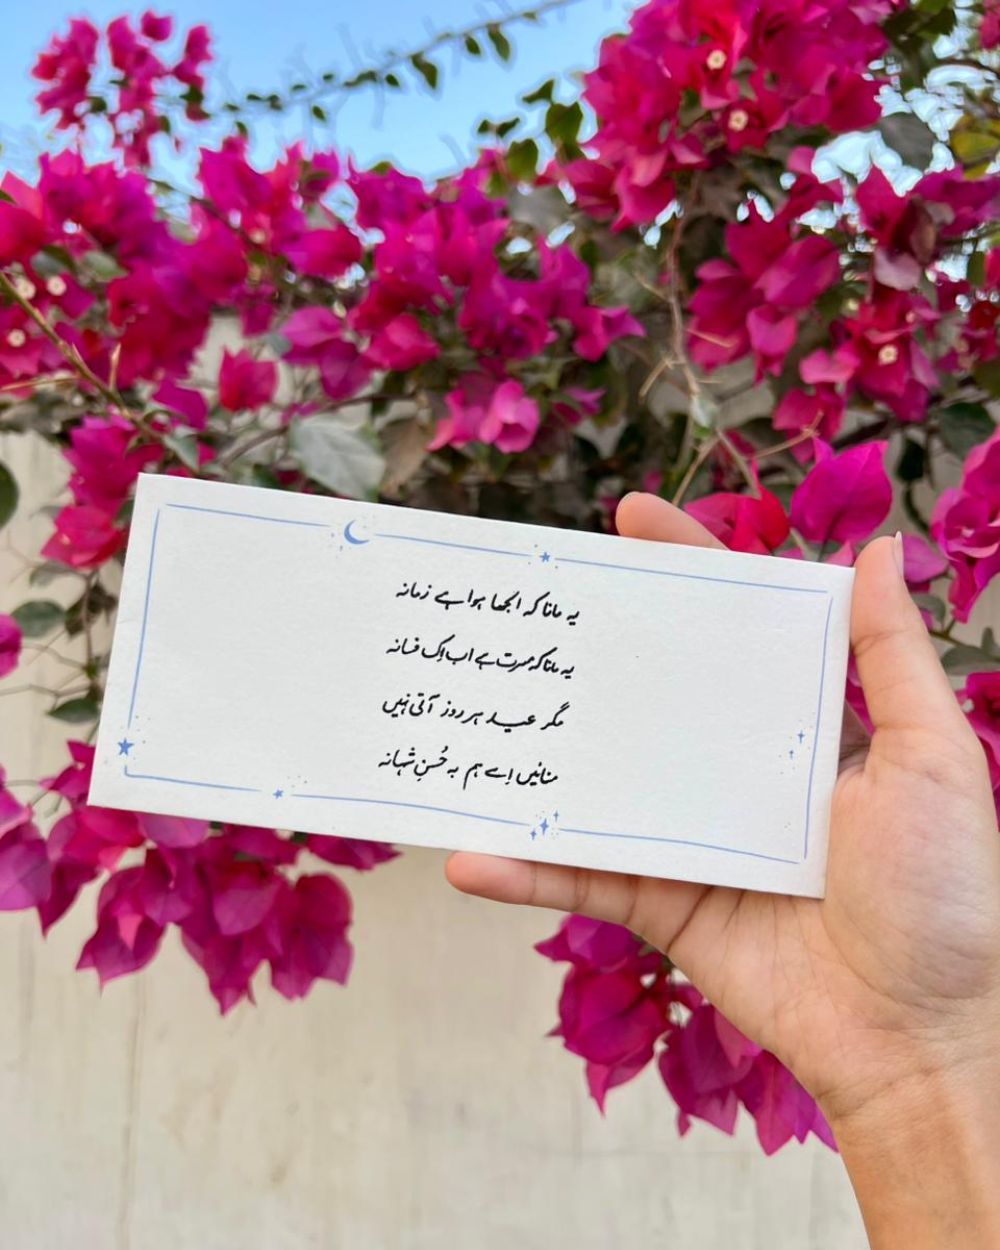 یہ مانا کہ الجھا ہوا ہے زمانہ
یہ مانا کہ مسرت ہے اب اِک فسانہ
مگر عید ہر روز آتی نہیں
منائیں اِسے ہم بہ حُسنِ شہانہ